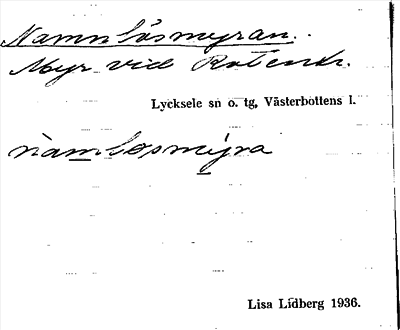 Namnlösmyran.
Myr vid
Lycksele sn o. tg, Västerbottens l.
nàmlosmýra
Lisa Lidberg 1936.